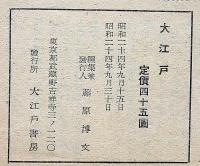 大江戸
定價四十五圓
昭和二十四年九月十五日
昭和二十四年九月三十日
編集兼
發行人
藤原博文
東京都武蔵野市吉祥寺三ノ一二二〇
發行所
大江戸書房